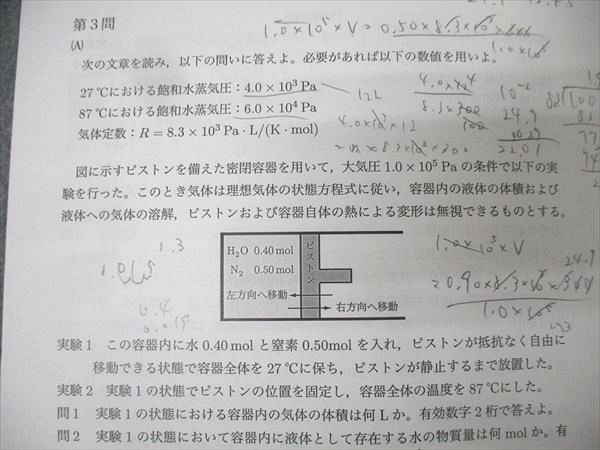 第3問
1.0×10⁵×V = 0.50×8.3×10³×300
(A)
次の文章を読み，以下の問いに答えよ。必要があれば以下の数値を用いよ。
27℃における飽和水蒸気圧：4.0×10³ Pa
87℃における飽和水蒸気圧：6.0×10⁴ Pa
気体定数：R＝8.3×10³ Pa・L/(K・mol)
12L
4.0×10³×12
= n×8.3×10³×300
24.9
22.01
図に示すピストンを備えた密閉容器を用いて，大気圧1.0×10⁵ Paの条件で以下の実
験を行った。このとき気体は理想気体の状態方程式に従い，容器内の液体の体積および
液体への気体の溶解，ピストンおよび容器自体の熱による変形は無視できるものとする。
H₂O 0.40 mol
N₂ 0.50 mol
ピストン
左方向へ移動
右方向へ移動
1.3
0.4
1.0×10⁵×V
24.9
1.0×10⁵
実験1 この容器内に水0.40 molと窒素0.50molを入れ，ピストンが抵抗なく自由に
移動できる状態で容器全体を27℃に保ち，ピストンが静止するまで放置した。
実験2 実験1の状態でピストンの位置を固定し，容器全体の温度を87℃にした。
問1 実験1の状態における容器内の気体の体積は何Lか。有効数字2桁で答えよ。
問2 実験1の状態において容器内に液体として存在する水の物質量は何molか。有